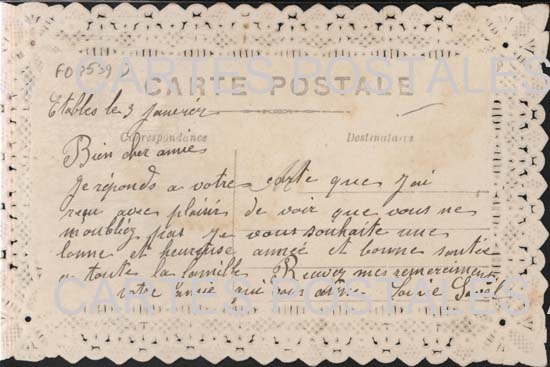 FD 2539
CARTES POSTALES
CARTE POSTALE
Etables le 3 Janvier
Correspondance Destinataire
Bien cher amie
Je réponds a votre carte que J'ai
reçu avec plaisir de voir que vous ne
m'oubliez pas Je vous souhaite une
bonne et heureuse année et bonne santée
a toute la famille Recevez mes remerciements
votre amie qui vous aime
CARTES POSTALES